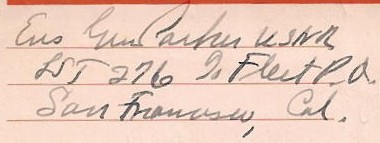 Ens Gwn Parker USNR
LST 276 % Fleet P.O.
San Francisco, Cal.